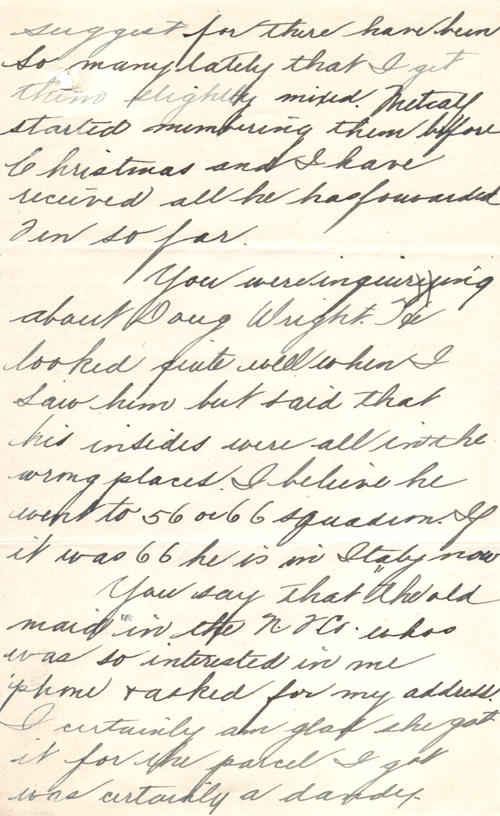 suggest for there have been
so many lately that I get
them slightly mixed. Metcalf
started numbering them before
Christmas and I have
received all he has forwarded
Ten so far.
You were inquiring
about Doug Wright. He
looked quite well when I
saw him but said that
his insides were all in the
wrong places. I believe he
went to 56 or 66 squadron. If
it was 66 he is in Italy now
You say that "the old
maid" in the N T Co. who
was so interested in me
'phone + asked for my address.
I certainly am glad she got
it for the parcel I got
was certainly a dandy.